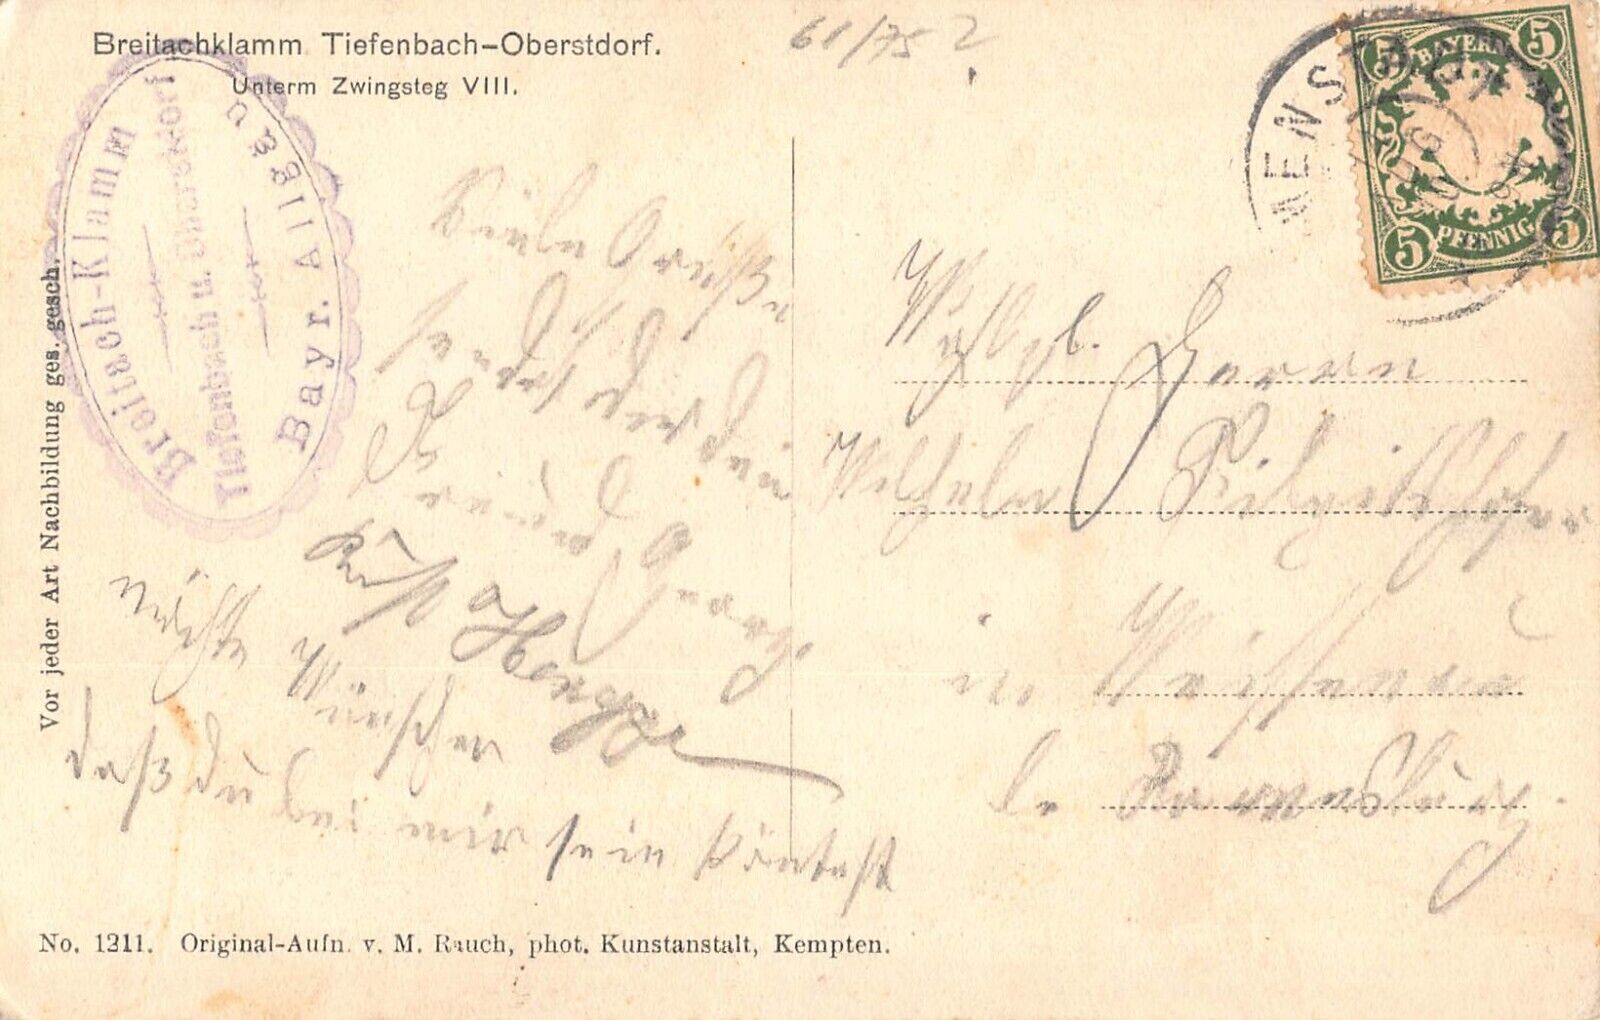 Breitachklamm Tiefenbach-Oberstdorf.
Unterm Zwingsteg VIII.
61/75 2
Breitach-Klamm
Tiefenbach u. Oberstdorf
Bayr. Allgäu
Vor jeder Art Nachbildung ges. gesch.
Viele Grüße
sendet dir dein
Freund Georg.
möchte Wünschen
daß du bei mir sein könntest
Wohlgb. Herrn
Wilhelm
in Weissenau
b. Ravensburg.
BAYERN
5 5
5 PFENNIG 5
No. 1211. Original-Aufn. v. M. Rauch, phot. Kunstanstalt, Kempten.